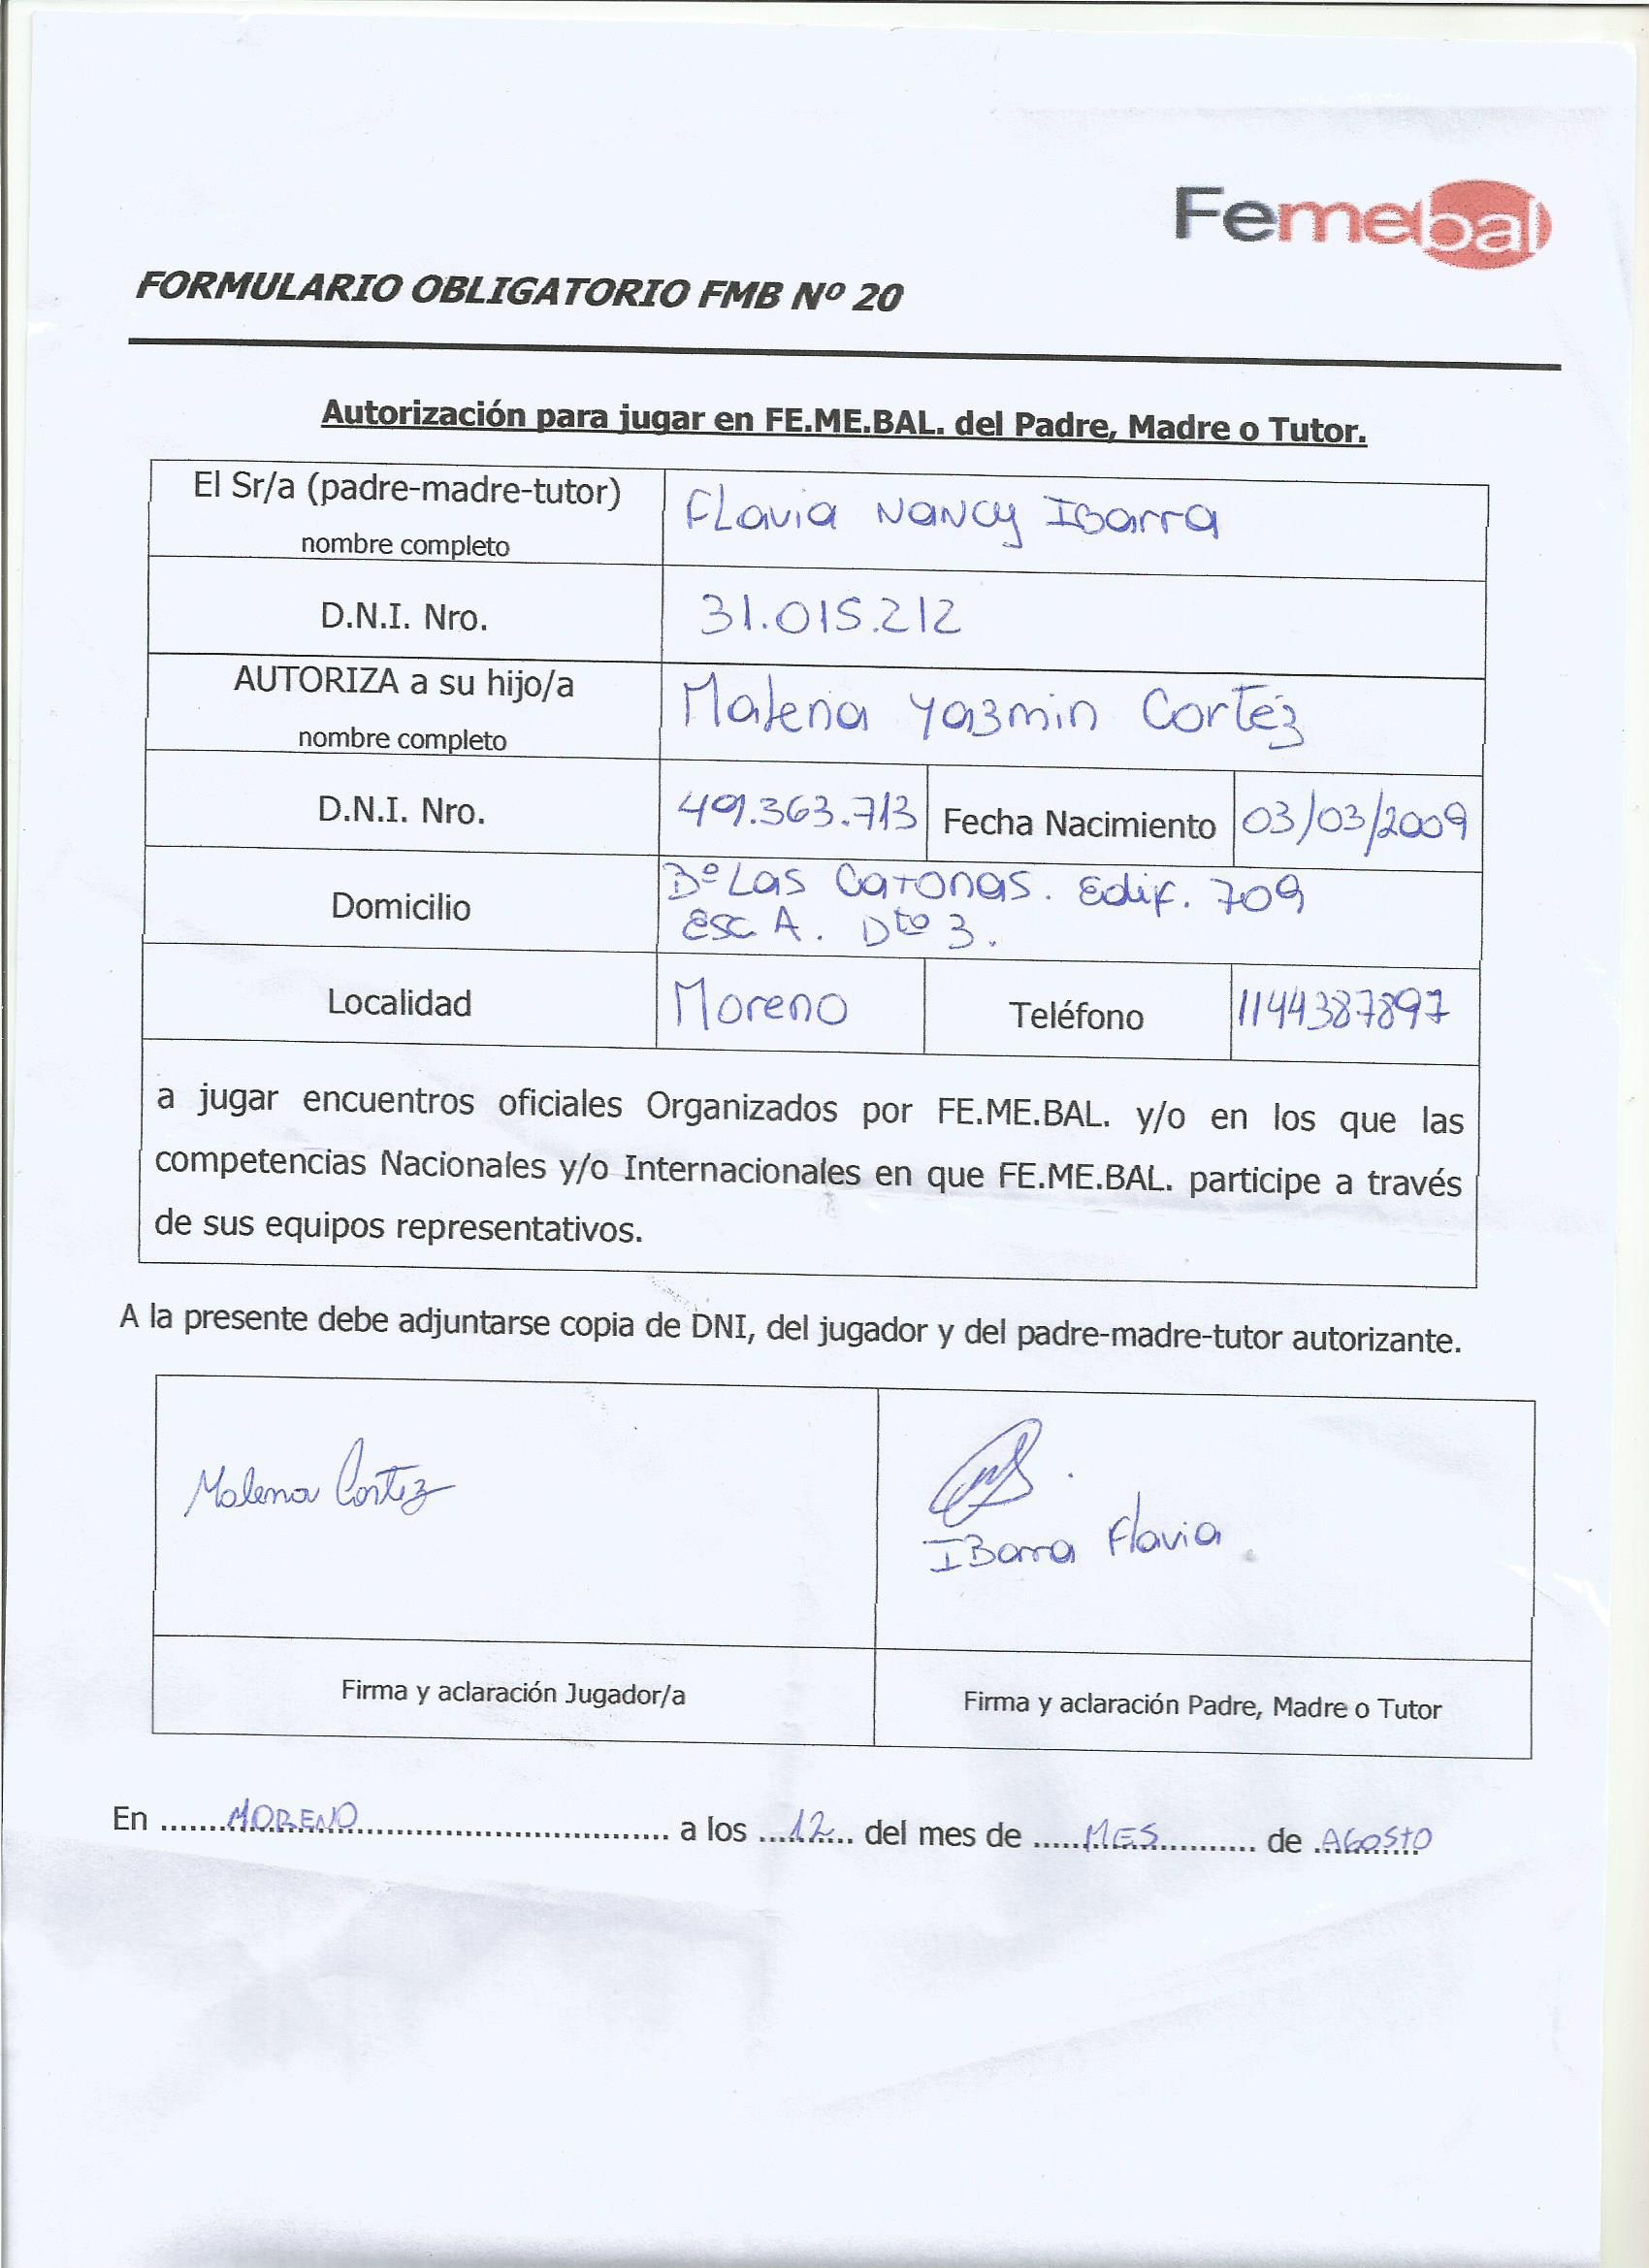 Femebal
FORMULARIO OBLIGATORIO FMB Nº 20
Autorización para jugar en FE.ME.BAL. del Padre, Madre o Tutor.
El Sr/a (padre-madre-tutor)
nombre completo
Flavia Nancy Ibarra
D.N.I. Nro.
31.015.212
AUTORIZA a su hijo/a
nombre completo
Malena Yazmin Cortéz
D.N.I. Nro.
49.363.713
Fecha Nacimiento
03/03/2009
Domicilio
Bº Las Catonas. Edif. 709
Esc A. Dto 3.
Localidad
Moreno
Teléfono
1144387897
a jugar encuentros oficiales Organizados por FE.ME.BAL. y/o en los que las
competencias Nacionales y/o Internacionales en que FE.ME.BAL. participe a través
de sus equipos representativos.
A la presente debe adjuntarse copia de DNI, del jugador y del padre-madre-tutor autorizante.
Malena Cortez
IBarra Flavia
Firma y aclaración Jugador/a
Firma y aclaración Padre, Madre o Tutor
En ......MORENO...... a los ....12.... del mes de .....MES......... de AGOSTO